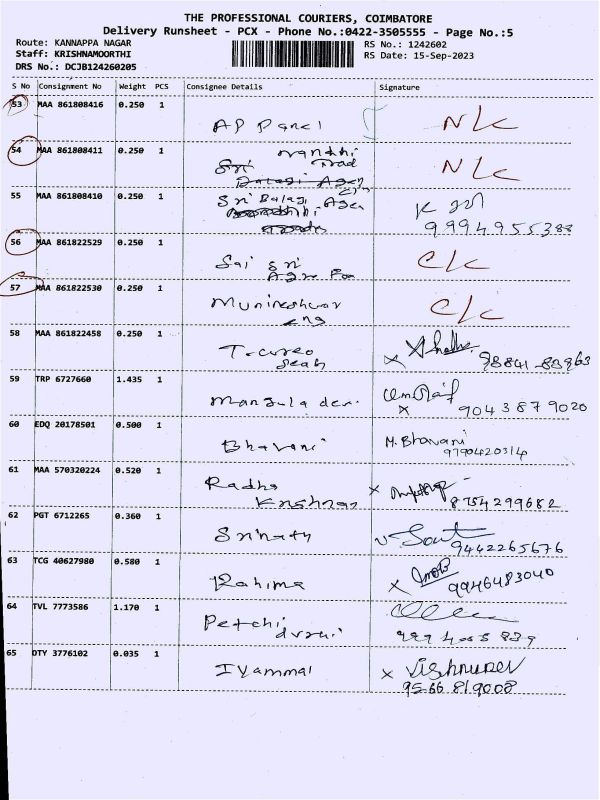 THE PROFESSIONAL COURIERS, COIMBATORE
Delivery Runsheet - PCX - Phone No.:0422-3505555 - Page No.:5
Route: KANNAPPA NAGAR
Staff: KRISHNAMOORTHI
DRS No.: DCJB124260205
RS No.: 1242602
RS Date: 15-Sep-2023
S No Consignment No Weight PCS Consignee Details Signature
53 MAA 861808416 0.250 1 AP Panel N/C
54 MAA 861808411 0.250 1 Nandhi N/C
Sri Trad
Balaji Agen
55 MAA 861808410 0.250 1 Sri Balaji Agen
9994955388
56 MAA 861822529 0.250 1 Sai Sri C/C
57 MAA 861822530 0.250 1 Munireshwar C/C
eng
58 MAA 861822458 0.250 1
59 TRP 6727660 1.435 1 Manjula devi
9043879020
60 EDQ 20178501 0.500 1 Bhavani M. Bhavani
9790420314
61 MAA 570320224 0.520 1 Radha
Krishnan 8754299682
62 PGT 6712265 0.360 1 Srinath
9442265676
63 TCG 40627980 0.580 1 Rahima
9946483040
64 TVL 7773586 1.170 1 Petchi
durai
65 OTY 3776102 0.035 1 Iyammal x Vishnudev
9566819008